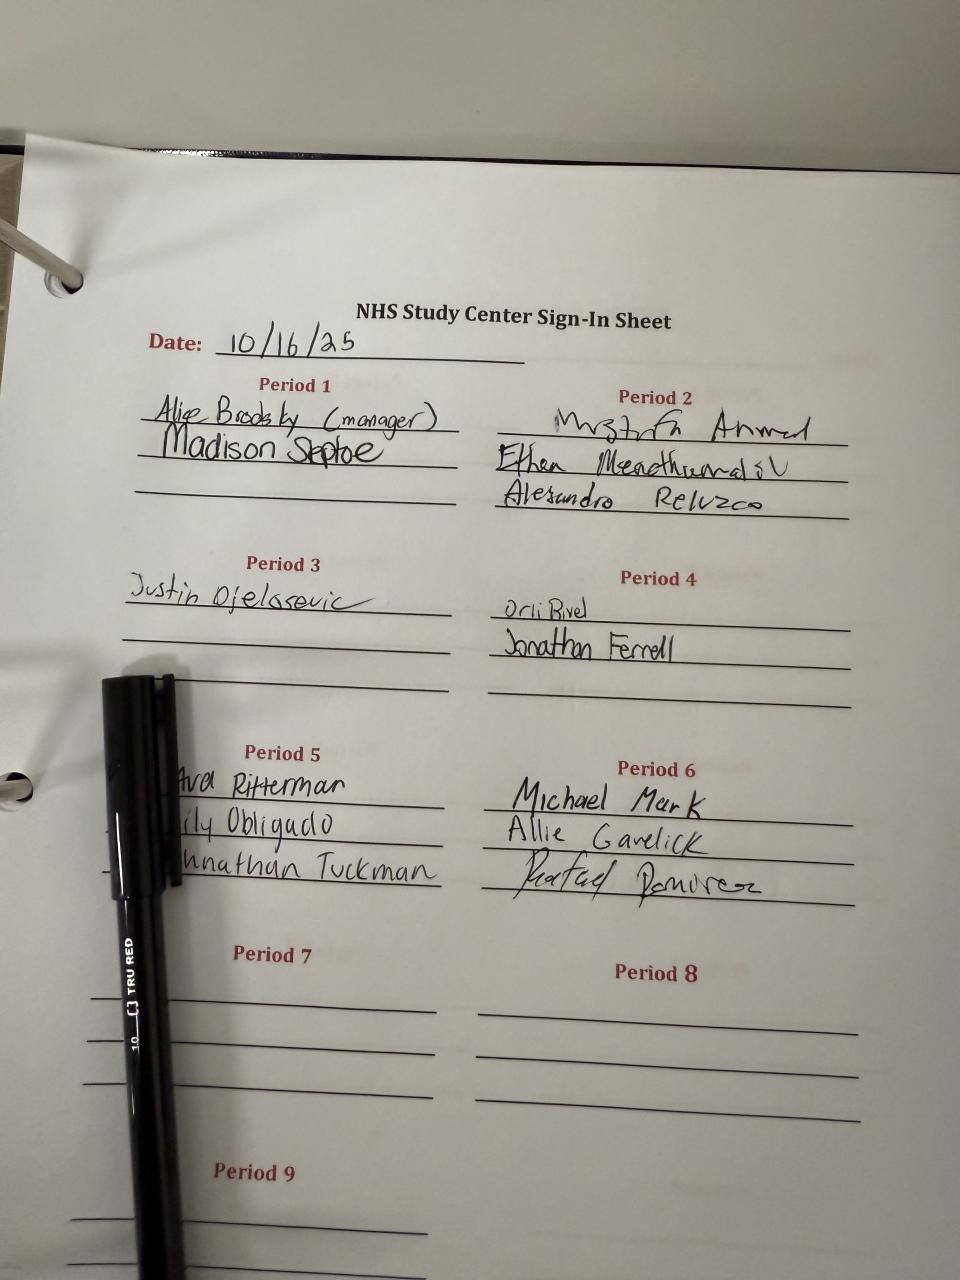 NHS Study Center Sign-In Sheet
Date: 10/16/25
Period 1
Alice Brodsky (manager)
Madison Septoe
Period 2
Ahmed
Ethan
Alesandro
Period 3
Justin Djelosevic
Period 4
Orli Rivel
Jonathan Ferrell
Period 5
Ava Ritterman
ily Obligado
hnathan Tuckman
Period 6
Michael Mark
Allie Gavelick
Rafael Ramirez
Period 7
Period 8
Period 9
1.0 TRU RED